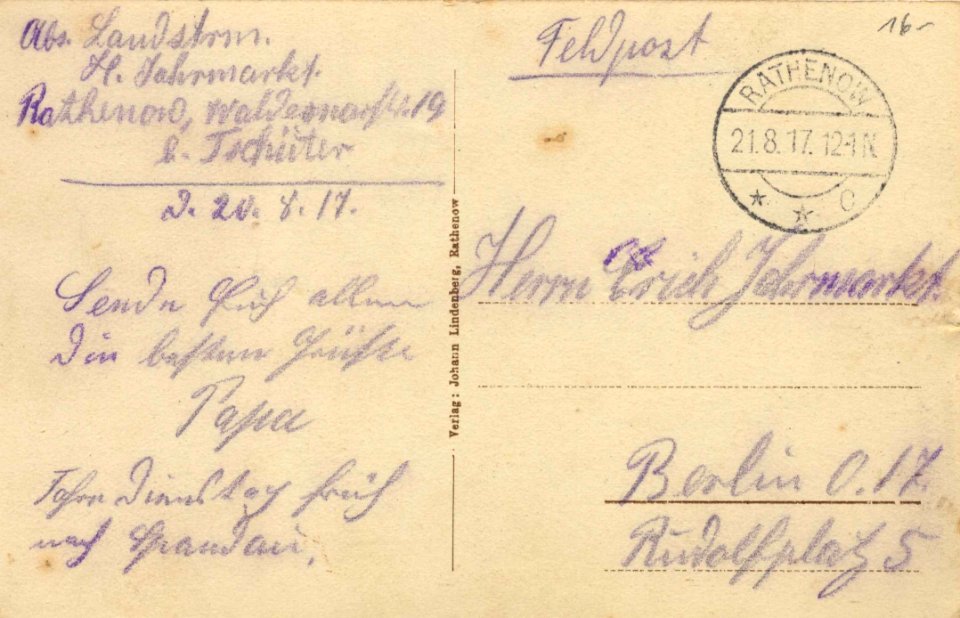 Abs. Landstrm.
H. Jahrmarkt.
Rathenow, Waldemarstr. 19
b. Tschüter
D. 20. 8. 17.
Sende Euch allen
die besten Grüße
Papa
Fahre Dienstag früh
nach Spandau.
Verlag: Johann Lindenberg, Rathenow
Feldpost
16-
RATHENOW
21.8.17. 12-1 N
* * C
Herrn Erich Jahrmarkt.
Berlin O. 17.
Rudolfplatz 5